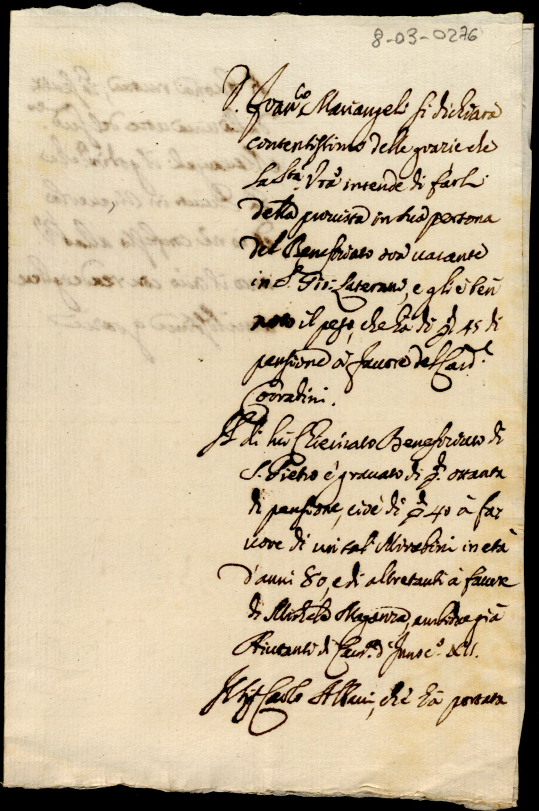 8-03-0276
D. Fran.co Mariangeli si dichiara
contentissimo delle grazie che
la S.tà V.ra intende di farli
della provista in sua persona
del Beneficiato ora vacante
in S. Gio: Laterano, e gli è ben
noto il peso, che hà di 45 di
pensione à favore del Card.l
Corradini.
Il di lui Chiericato Beneficiato di
S. Pietro è gravato di ottanta
di pensione, cioè di 40 à fa-
vore di un tal Mirabini in età
d'anni 80, e di altretanti à favore
di Michele Maganza, ambidue già
Aiutanti di Cam.ra d'Innoc.o XII.
Il Sig.r Carlo Albani, che hà portata